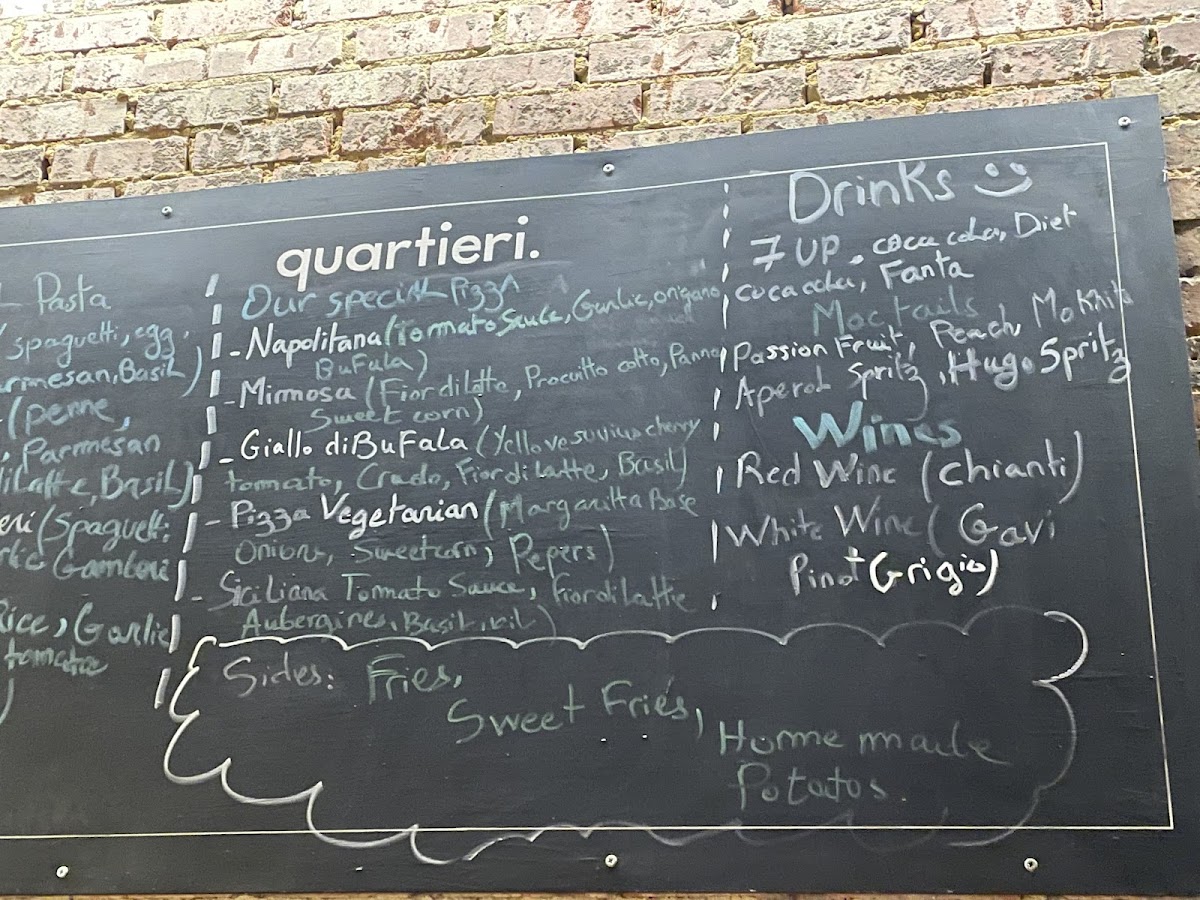 quartieri.
Pasta
spaguetti, egg,
armesan, Basil)
(penne,
, Parmesan
dilatte, Basil)
eri (Spaguetti
Garlic Gamberi
Rice, Garlic
tomato
)
Our special Pizza
- Napolitana (Tomato Sauce, Garlic, origano
BuFala)
- Mimosa (Fiordilatte, Procuitto cotto, Panna
Sweet corn)
- Giallo diBuFala (Yellovesuvius cherry
tomato, Crudo, Fiordilatte, Basil)
- Pizza Vegetarian (Margaritta Base
Onions, Sweetcorn, Pepers)
- Siciliana Tomato Sauce, Fiordilatte
Aubergines, Basil, oil)
Drinks
7 UP, coca cola, Diet
coca cola, Fanta
Moctails
Passion Fruit, Peach, Mokhito
Aperol Spritz, Hugo Spritz
Wines
Red Wine (chianti)
White Wine (Gavi
Pinot Grigio)
Sides: Fries,
Sweet Fries,
Home made
Potatos